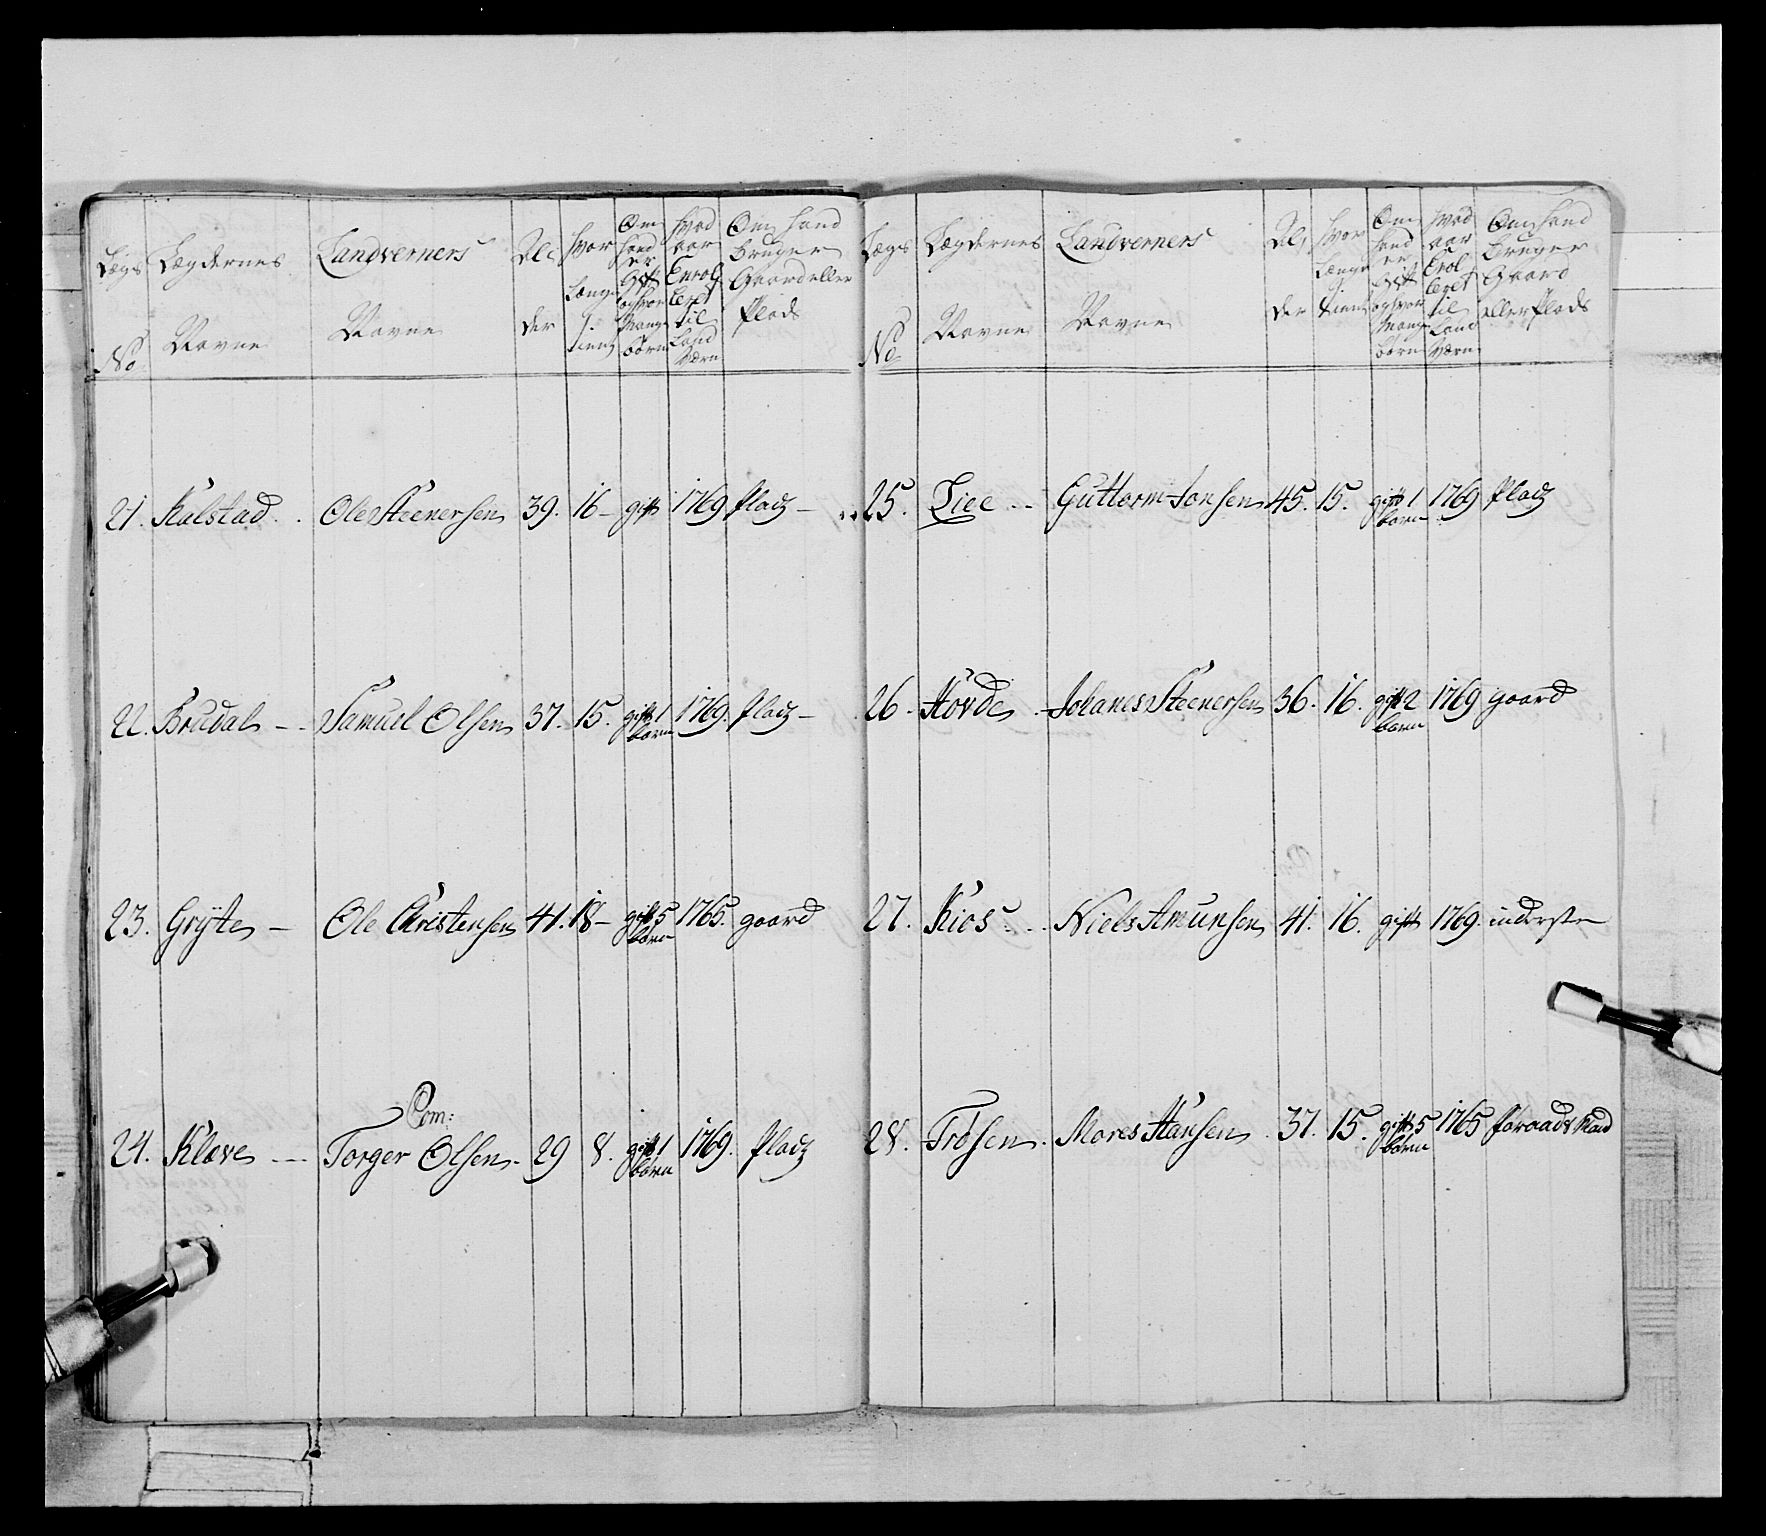 Lægs No
Lægdernes Navne
Landverners Navne
Al- der
Hvor Længe tient
Om hand er Gift og hvor Mange børn
Hvad aar Enrol- leret til Land Værn
Om hand bruger Gaard eller Plads
21. Kalstad . . Ole Steenersen 39. 16 - gift 1769 Plads -
22. Brudal - - Samuel Olsen 37. 15. gift 1 børn 1769. Plads -
23. Gryte - Ole Christensen 41. 18 - gift 5 børn 1765. gaard
Com:
24. Klæve - - Torger Olsen - 29 8. gift 1 børn 1769. Plads
Lægs No
Lægdernes Navne
Landverners Navne
Al- der
Hvor Længe tient
Om hand er Gift og hvor Mange børn
Hvad aar Enrol- leret til Land Værn
Om hand bruger Gaard eller Plads
25. Liee - - Guttorm Jonsen 45. 15. gift 1 børn 1769 Plads
26. Hovde - Johanes Steenersen 36. 16. gift 2 børn 1769 gaard
27. Kios - . . Niels Amunsen 41. 16. gift 1769. inderste
28. Frøsen . Mores Hansen . 37. 15. gift 5 børn 1765